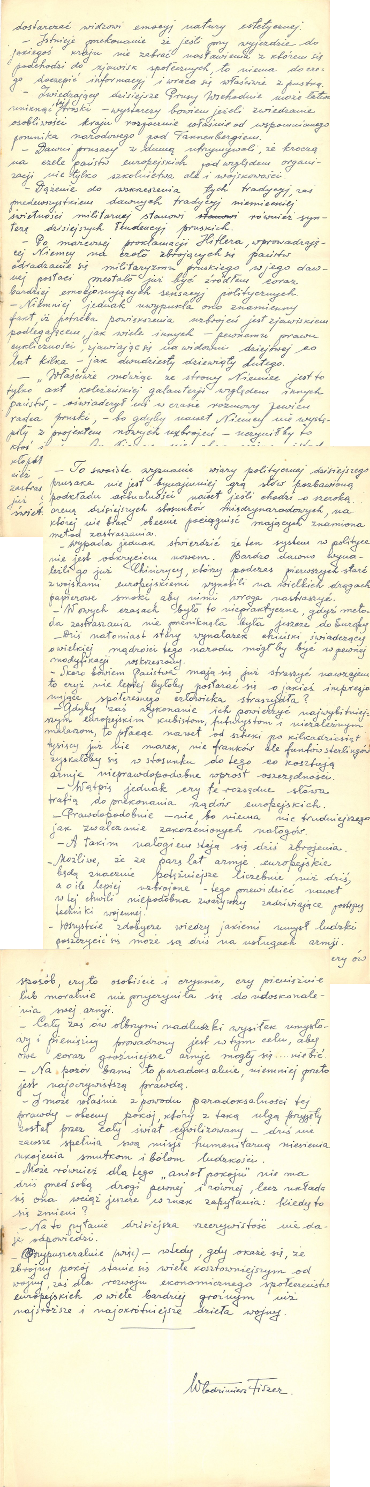 dostarczać widzowi emocyj natury estetycznej.
- Istnieje przekonanie że jeśli przy wyjeździe do
jakiegoś kraju nie zabrać nastawienia z którem się
podchodzi do zjawisk społecznych, to niema do czego
doczepić informacyj i wraca się właściwie z pustką.
- Zwiedzający dzisiejsze Prusy Wschodnie może łatwo
uniknąć troski - wystarczy bowiem jeśli zwiedzanie
osobliwości kraju rozpocznie właśnie od wspomnianego
pomnika narodowego pod Tannenbergiem.
- Dawni prusacy z dumą utrzymywali, że kroczą
na czele państw europejskich pod względem organi-
zacji nie tylko szkolnictwa ale i wojskowości
- Dążenie do wskrzeszenia tych tradycyj, zaś
przedewszystkiem dawnych tradycyj niemieckiej
świetności militarnej stanowi również syn-
tezę dzisiejszych tendencyj pruskich.
- Po marcowej proklamacji Hitlera, wprowadzają-
cej Niemcy na czoło zbrojących się państw
odradzanie się militaryzmu pruskiego w jego daw-
nej postaci przestało już być źródłem coraz
bardziej zniechęcających sensacyj politycznych
- Niemniej jednak uwypukla ono znamienny
fakt, iż potrzeba powiększenia uzbrojeń jest zjawiskiem
podlegającem jak wiele innych - pewnemu prawu
cykliczności zjawiając się na widowni dziejowej co
lat kilka - jak dwudziesty dziewiąty lutego.
- "Właściwie mówiąc ze strony Niemiec jest to
tylko akt koleżeńskiej galanterji względem innych
państw, - oświadczył mi w czasie rozmowy pewien
radca pruski, - bo gdyby nawet Niemcy nie wystą-
piły z projektem nowych uzbrojeń - uczyniłby to
- To swoiste wyznanie wiary politycznej dzisiejszego
prusaka nie jest bynajmniej grą słów pozbawioną
podkładu aktualności nawet jeśli chodzi o szeroką
arenę dzisiejszych stosunków międzynarodowych, na
której nie brak obecnie pociągnięć mających znamiona
metod zastraszania.
- Wypada jednak stwierdzić że ten system w polityce
nie jest odkryciem nowem. Bardzo dawno wyna-
leźli go już Chińczycy, którzy podczas pierwszych starć
z wojskami europejskiemi wynosili na wielkich drągach
papierowe smoki aby nimi wroga nastraszyć.
- W owych czasach było to niepraktyczne, gdyż meto-
da zastraszania nie przeniknęła była jeszcze do Europy
- Dziś natomiast stary wynalazek chiński świadczący
o wielkiej mądrości tego narodu mógłby być w pewnej
modyfikacji wskrzeszony.
- Skoro bowiem Państwa mają się już straszyć nawzajem
to czyż nie lepiej byłoby postarać się o jakieś impresjo-
nujące współczesnego człowieka straszydła?
- Gdyby zaś wykonanie ich powierzyć najwybitniej-
szym europejskim kubistom, futurystom i niezależnym
malarzom, to płacąc nawet od sztuki po kilkadziesiąt
tysięcy już nie marek, nie franków ale funtów sterlingów
zyskałoby się w stosunku do tego co kosztują
armje nieprawdopodobne wprost oszczędności.
- Wątpię jednak czy te rozsądne słowa
trafią do przekonania rządów europejskich.
- Prawdopodobnie - nie, bo niema nic trudniejszego
jak zwalczanie zakorzenionych nałogów.
- A takim nałogiem stają się dziś zbrojenia.
- Możliwe, że za parę lat armje europejskie
będą znacznie potężniejsze liczebnie niż dziś,
a o ile lepiej uzbrojone - tego przewidzieć nawet
w tej chwili niepodobna zważywszy zadziwiające postępy
techniki wojennej.
- Wszystkie zdobycze wiedzy jakiemi umysł ludzki
poszczycić się może są dziś na usługach armji.
czy ów
sposób, czy to osobiście i czynnie, czy pieniężnie
lub moralnie nie przyczyniła się do udoskonale-
nia swej armji.
- Cały zaś ów olbrzymi nadludzki wysiłek umysło-
wy i pieniężny prowadzony jest w tym celu, aby
owe coraz groźniejsze armje mogły się.... nie bić.
- Na pozór brzmi to paradoksalnie, niemniej przeto
jest najoczywistszą prawdą.
- I może właśnie z powodu paradoksalności tej
prawdy - obecny pokój, który z taką ulgą przyjęty
został przez cały świat cywilizowany - dziś nie
zawsze spełnia swą misję humanitarną niesienia
ukojenia smutkom i bólom ludzkości.
- Może również dla tego "anioł pokoju" nie ma
dziś przed sobą drogi pewnej i równej, lecz układa
się ona wciąż jeszcze w znak zapytania: kiedy to
się zmieni?
- Na to pytanie dzisiejsza rzeczywistość nie da-
je odpowiedzi.
- Przypuszczalnie (więc) - wtedy, gdy okaże się, że
zbrojny pokój stanie się wiele kosztowniejszym od
wojny, zaś dla rozwoju ekonomicznego społeczeństw
europejskich o wiele bardziej groźnym niż
najsroższe i najokrótniejsze dzieła wojny.
Włodzimierz Fiszer.